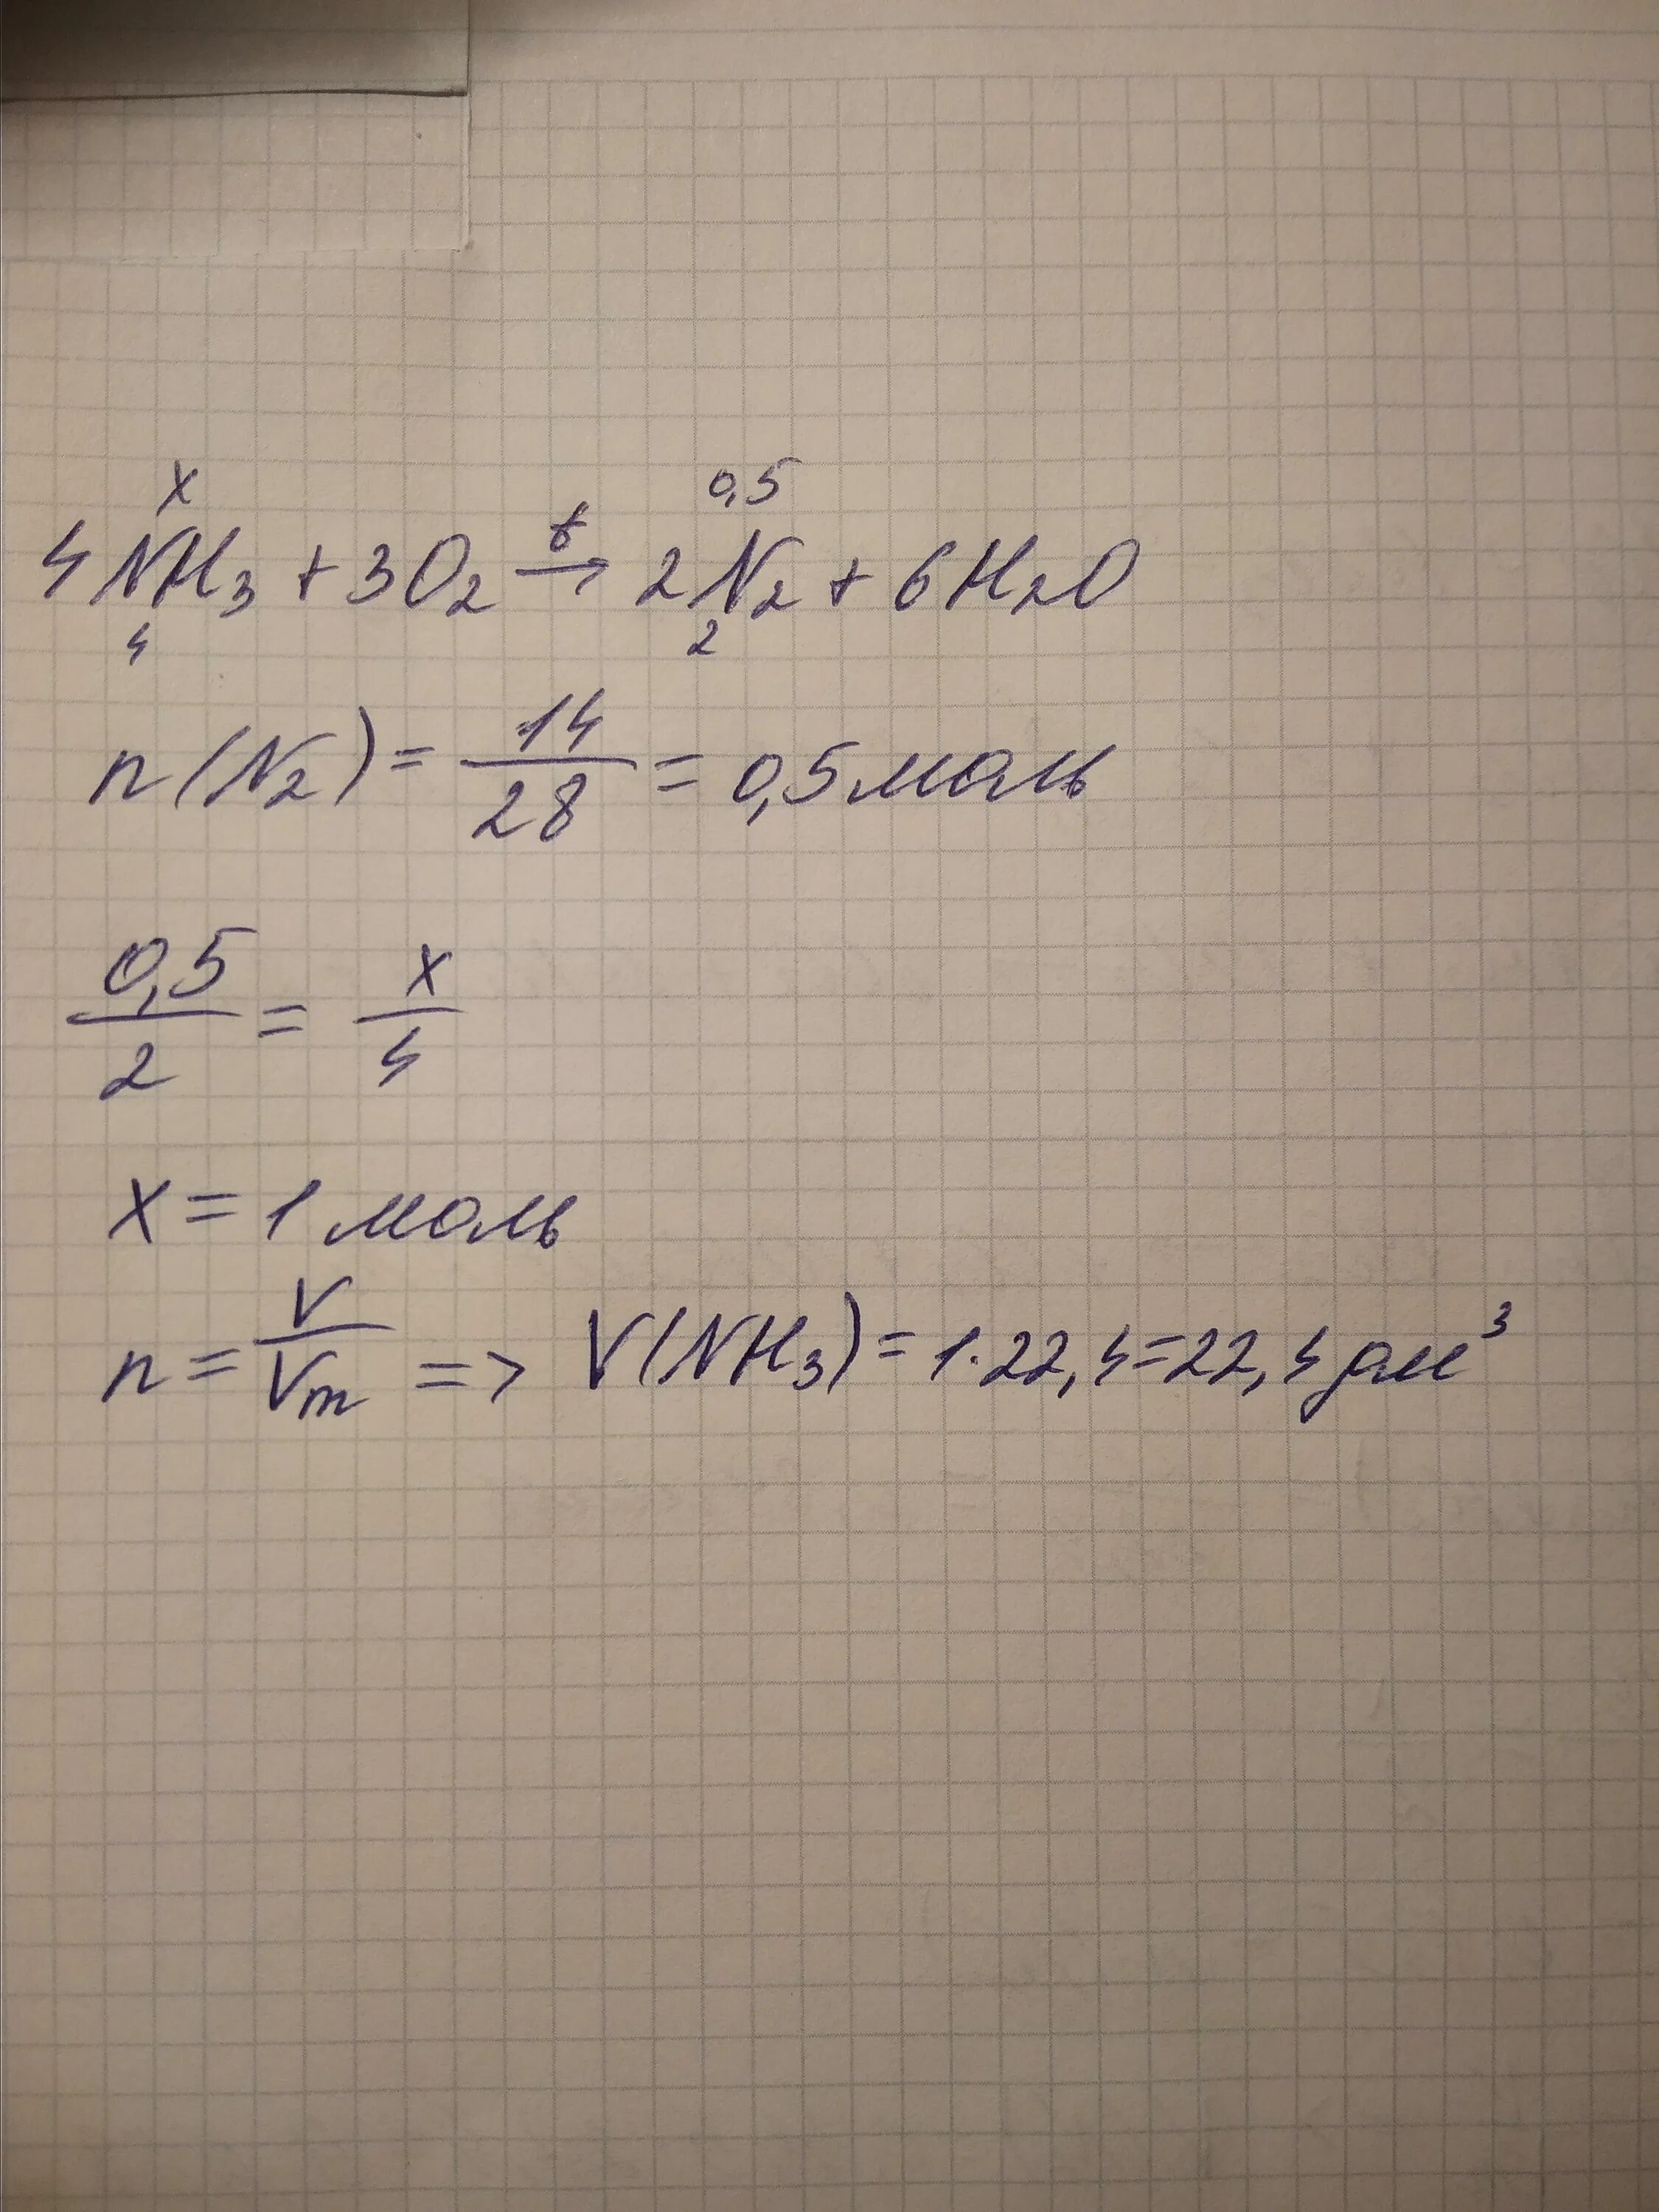 x 0,5
4NH₃ + 3O₂ →ᵗ 2N₂ + 6H₂O
4 2
n(N₂) = 14/28 = 0,5 моль
0,5/2 = x/4
x = 1 моль
n = V/Vm => V(NH₃) = 1·22,4 = 22,4 дм³